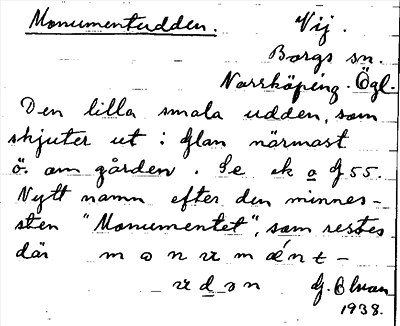 Monumentudden. Vij.
Borgs sn.
Norrköping. Ögl.
Den lilla smala udden, som
skjuter ut i Glan närmast
ö. om gården. Se ek o G55.
Nytt namn efter den minnes-
sten "Monumentet", som restes
där m ɔ n ɯ m ǽ n t -
ɯ d ə n G. Ekman
1938.